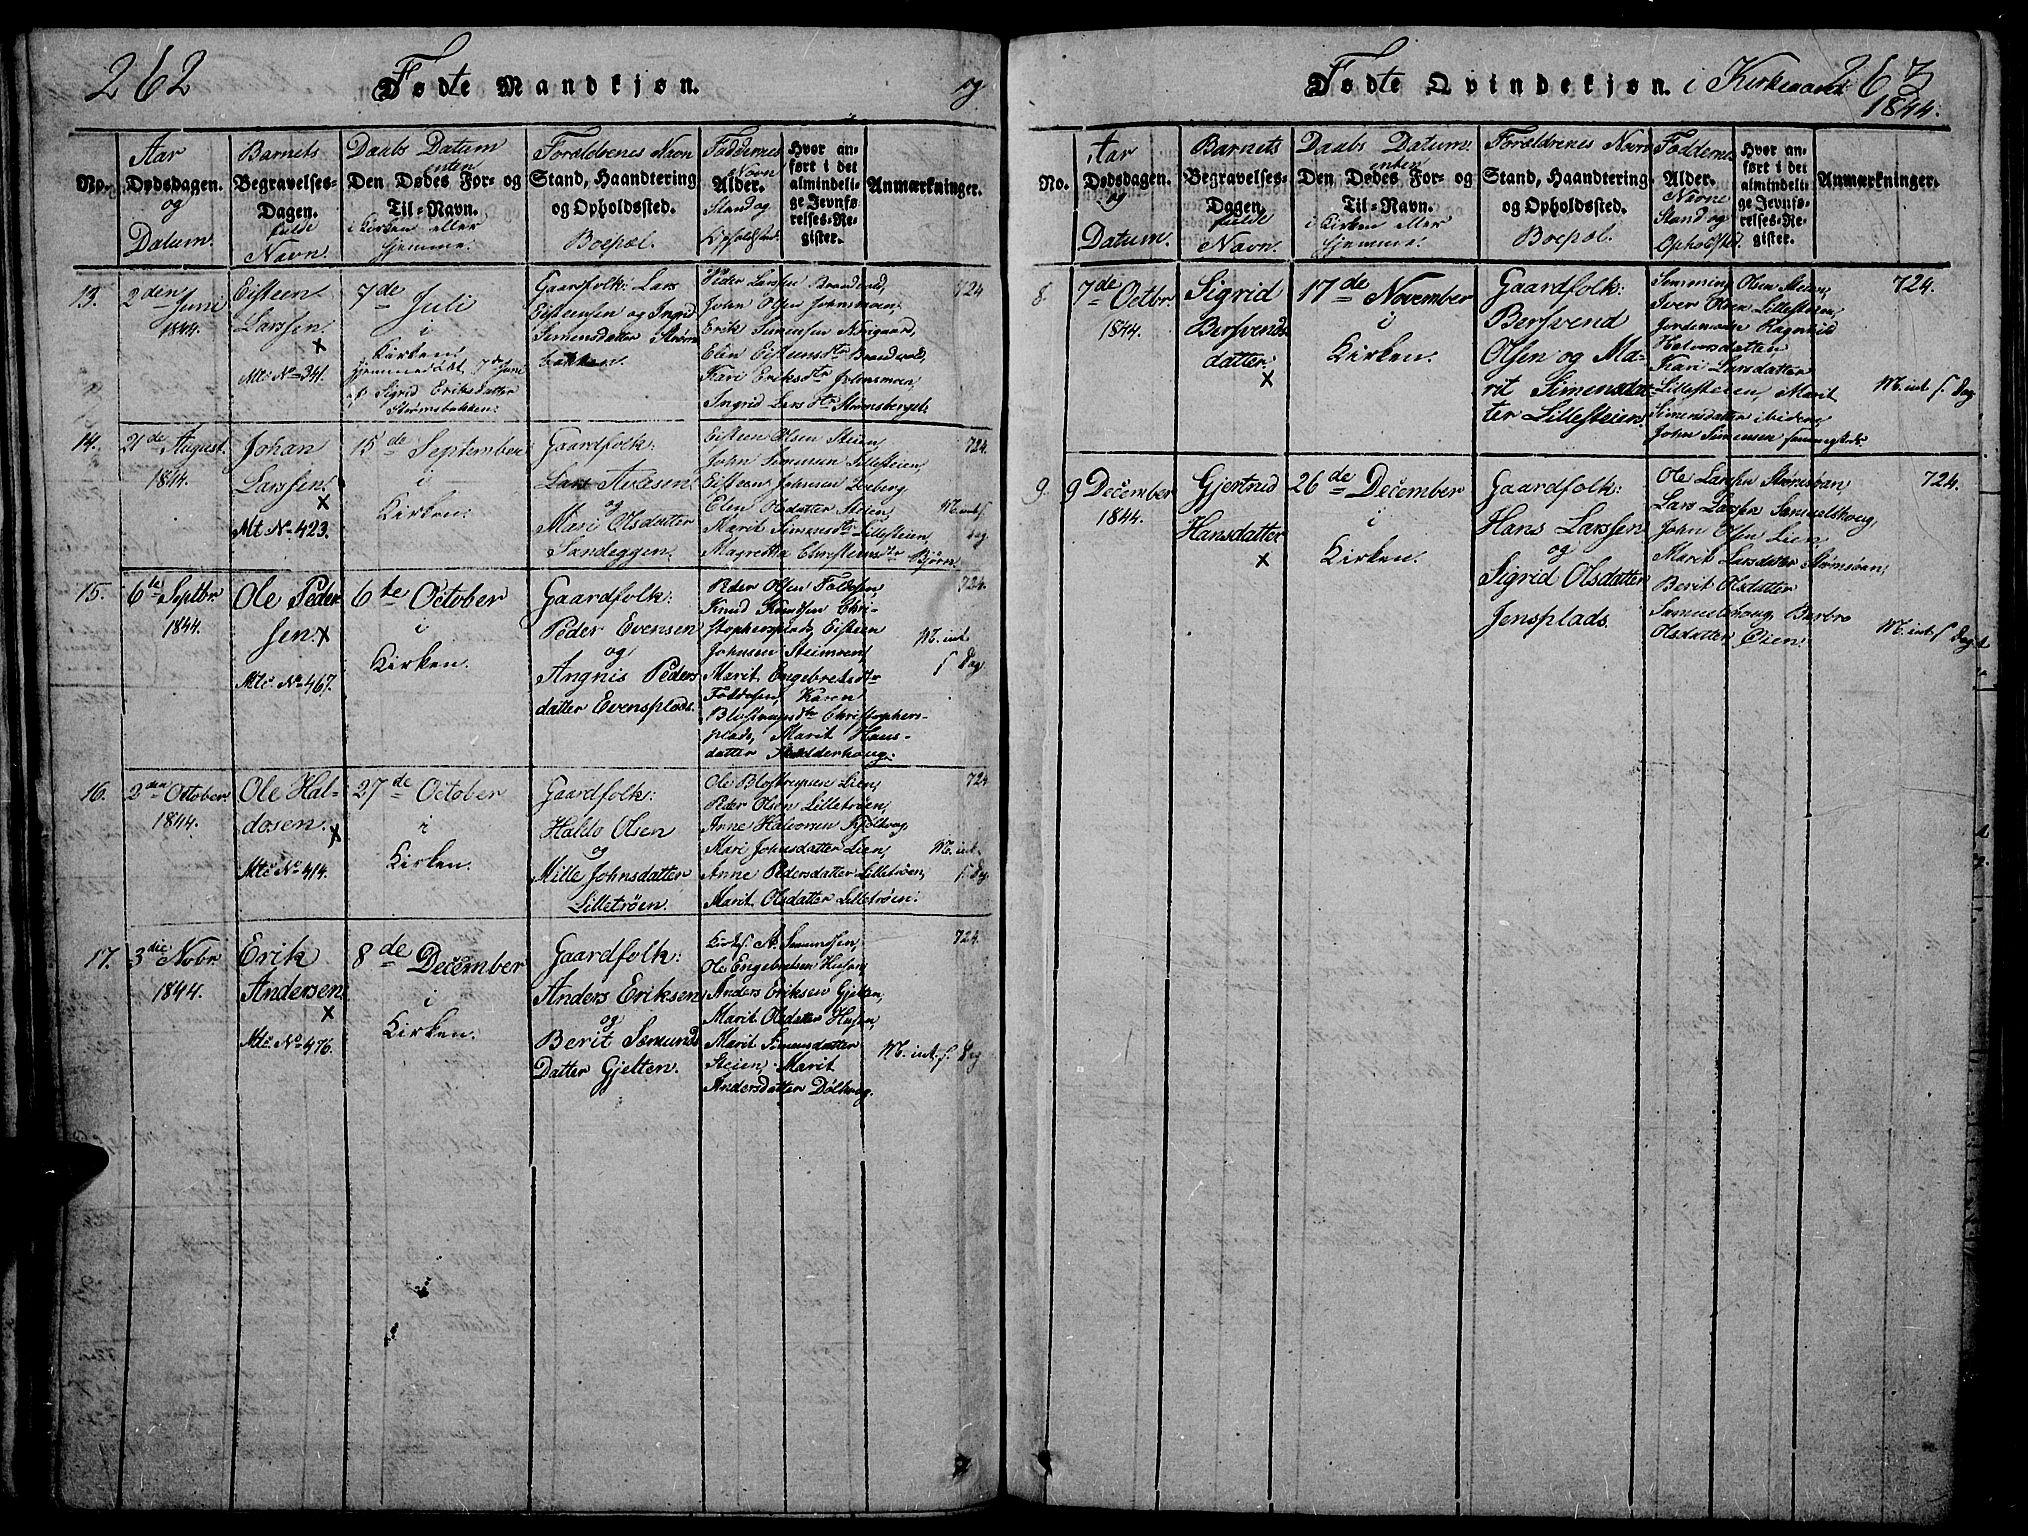 262
Fødte Mandkjøn.
og
No.
Aar
Dødsdagen.
og
Datum.
Barnets
Begravelses-
Dagen.
fulde
Navn.
Daabs Datum
enten
Den Dødes For- og
Til-Navn.
i Kirken eller
hjemme.
Forældrenes Navn
Stand, Haandtering
og Opholdssted.
Boepæl.
Faddernes
Navn
Alder.
Stand og
Opholdsted.
Hvor an-
ført i det
almindeli-
ge Jevnfø-
relses-Re-
gister.
Anmærkninger.
13.
2den Juni
1844.
Eisteen
Larssen.
x
Mtc No 341.
7de Juli
i
Kirken,
hjemmedøbt 7de Juni
af Sigrid Eriksdatter
Strømsbakken.
Gaardfolk: Lars
Eisteensen og Ingrid
Simensdatter Strøms-
bakken.
Peder Larssen Brandvold,
John Olsen Johnsmoen,
Erik Simensen Norgaard,
Elen Eisteensdtr Brandvold,
Kari Eriksdtr Johnsmoen,
Ingrid Larsdtr
724
14.
21de August
1844.
Johan
Larssen.
x
Mt No 423.
15de September
i
Kirken.
Gaardfolk:
Lars Avesen
og
Mari Olsdatter
Sandeggen.
Eisteen Olsen Steien,
John Simensen Lillesteien,
Eisteen Johnsen
Elen Olsdatter Steien,
Marit Simensdtr Lillesteien,
Magretha Christensdtr
724.
M. int. f.
dag
15.
6te Septbr
1844.
Ole Peder
sen. x
Mtc No 467.
6te October
i
Kirken.
Gaardfolk:
Peder Evensen
og
Angnis Peders
datter Evensplads.
Peder Olsen
Knud Knudsen Chri-
stophersplads, Eisteen
Johnsen Steimoen,
Marit Engebretsdtr
Karen
Christophers-
plads, Marit Hans-
datter
724.
M. int.
f. Dag
16.
2den October
1844.
Ole Hal-
dosen.
x
Mtc No 414.
27de October
i
Kirken.
Gaardfolk:
Haldo Olsen
og
Mille Johnsdatter
Lilletrøen.
Ole Lien,
Peder Olsen Lilletrøen,
Arne Halvorsen
Mari Johnsdatter Lien,
Anne Pedersdatter Lilletrøen,
Marit Olsdatter Lilletrøen.
724
M. int.
f. Dag
17.
3die Nobr
1844.
Erik
Andersen
x
Mtc No 476.
8de December
i
Kirken.
Gaardfolk:
Anders Eriksen
og
Berit Semund
Datter Gjelten.
Kirks. A. Semundsen,
Ole Engebretsen Husan,
Anders Eriksen Gjelten,
Marit Olsdatter Husan,
Marit Simensdatter
Steien, Marit
Andersdatter Dølhaug.
724.
M. int. f. Dag
Fødte Qvindekjøn. i Kirkeaaret
263
1844.
No.
Aar
Dødsdagen.
og
Datum.
Barnets
Begravelses-
Dagen.
fulde
Navn.
Daabs Datum
enten
Den Dødes For- og
Til-Navn.
i Kirken eller
hjemme.
Forældrenes Navn
Stand, Haandtering
og Opholdssted.
Boepæl.
Faddernes
Alder.
Navne
Stand og
Opholdsted.
Hvor an-
ført i det
almindeli-
ge Jevnfø-
relses-Re-
gister.
Anmærkninger.
8.
7de Octbr
1844.
Sigrid
Bersvends
datter.
x
17de November
i
Kirken.
Gaardfolk:
Bersvend
Olsen og Ma-
rit Simensdat-
ter Lillesteien.
Semming Olsen Steien,
Iver Olsen Lillesteien,
Jordemoder Ragnhild
Halvorsdatter
Kari Larsdatter
Lillesteien, Marit
Simensdatter ibidem,
John Simensen
724.
M. int. f. Dag
9.
9 December
1844.
Gjertrud
Hansdatter
x
26de December
i
Kirken.
Gaardfolk:
Hans Larssen
og
Sigrid Olsdatter
Jensplads.
Ole Larssen Strømsøan,
Lars Larsen Samuelshoug,
John Olsen Lien,
Marit Larsdatter Strømsøan,
Berit Olsdatter
Samuelshoug, Barbro
Olsdatter Eien.
724.
M. int. f. Dag